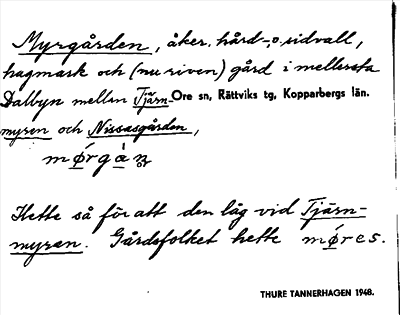 Myrgården, åker, hård-, o. sidvall,
hagmark och (nu riven) gård i mellersta
Dalbyn mellan Tjärn- Ore sn, Rättviks tg, Kopparbergs län.
myren och Nissasgården,
Hette så för att den låg vid Tjärn-
myren. Gårdsfolket hette møres.
THURE TANNERHAGEN 1948.